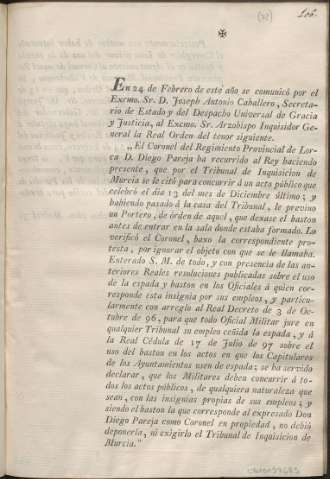 (32)
106.
✠
En 24 de Febrero de este año se comunicó por el
Excmo. Sr. D. Joseph Antonio Caballero, Secreta-
rio de Estado y del Despacho Universal de Gracia
y Justicia, al Excmo. Sr. Arzobispo Inquisidor Ge-
neral la Real Orden del tenor siguiente.
„El Coronel del Regimiento Provincial de Lor-
ca D. Diego Pareja ha recurrido al Rey haciendo
presente, que por el Tribunal de Inquisicion de
Murcia se le citó para concurrir á un acto público que
celebró el dia 13 del mes de Diciembre último; y
habiendo pasado á la casa del Tribunal, le previno
un Portero, de órden de aquel, que dexase el baston
antes de entrar en la sala donde estaba formado. Lo
verificó el Coronel, baxo la correspondiente pro-
testa, por ignorar el objeto con que se le llamaba.
Enterado S. M. de todo, y con presencia de las an-
teriores Reales resoluciones publicadas sobre el uso
de la espada y baston en los Oficiales á quien cor-
responde esta insignia por sus empleos, y particu-
larmente con arreglo al Real Decreto de 3 de Oc-
tubre de 96, para que todo Oficial Militar jure en
qualquier Tribunal su empleo ceñida la espada, y á
la Real Cédula de 17 de Julio de 97 sobre el
uso del baston en los actos en que los Capitulares
de los Ayuntamientos usen de espada; se ha servido
declarar, que los Militares deben concurrir á to-
dos los actos públicos, de qualquiera naturaleza que
sean, con las insignias propias de sus empleos; y
siendo el baston la que corresponde al expresado Don
Diego Pareja como Coronel en propiedad, no debió
deponerla, ni exigirlo el Tribunal de Inquisicion de
Murcia."